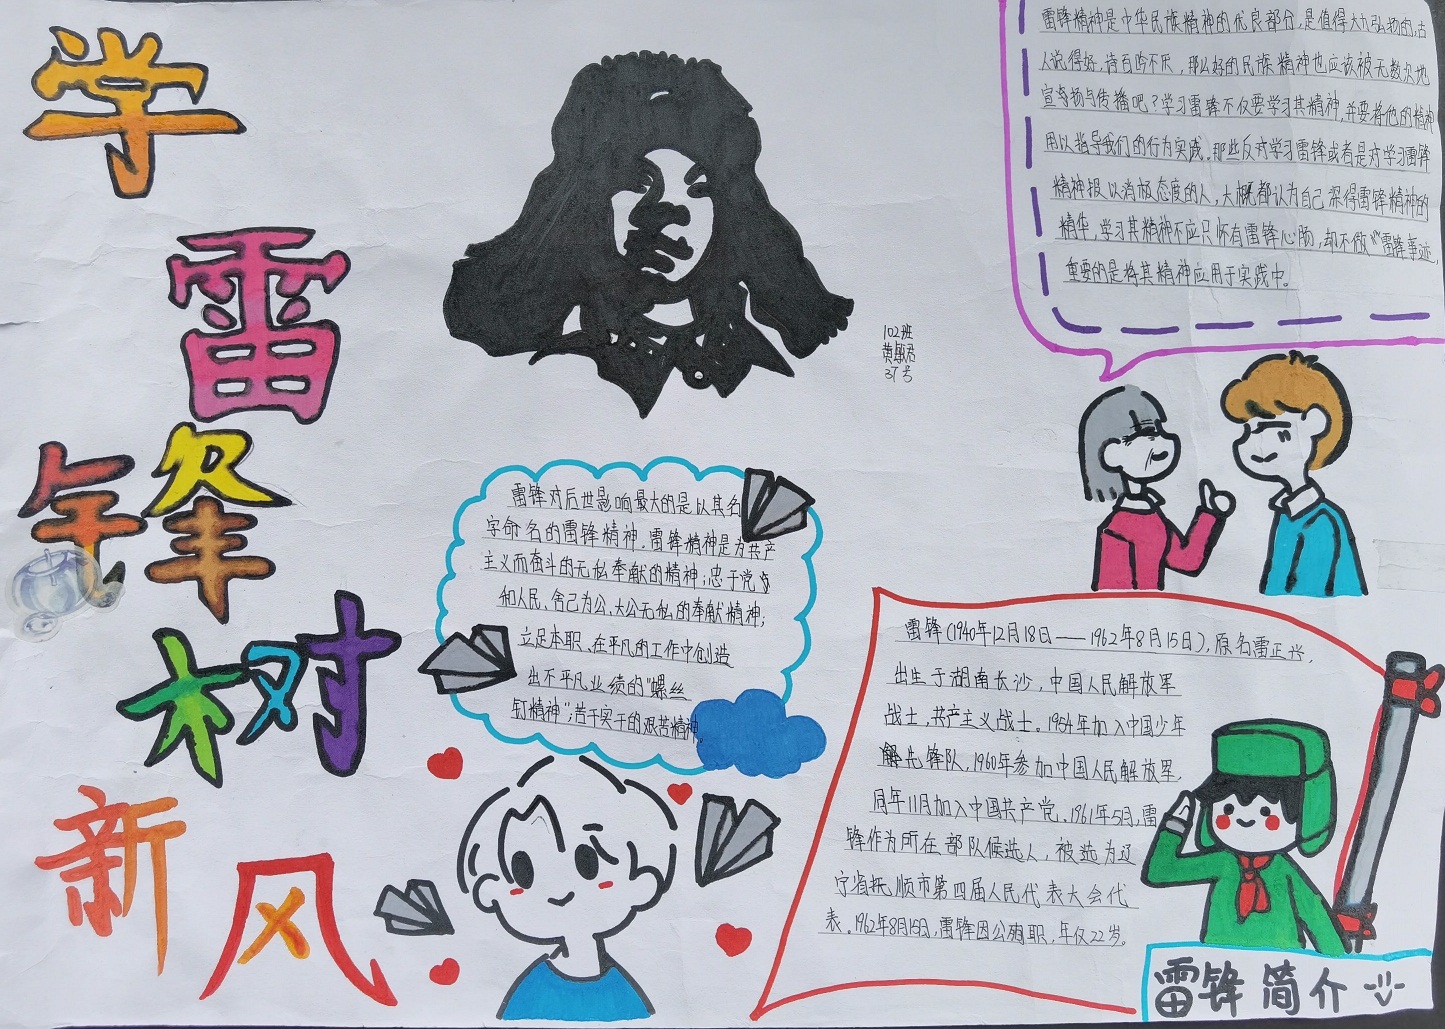 学
雷
锋
树
新
风
102班
黄敏君
37号
雷锋精神是中华民族精神的优良部分,是值得大力弘扬的,古
人说得好,诗百吟不厌,那么好的民族精神也应该被无数次地
宣扬与传播吧?学习雷锋不仅要学习其精神,并要将他的精神
用以指导我们的行为实践。那些反对学习雷锋或者是对学习雷锋
精神报以消极态度的人,大概都认为自己深得雷锋精神的
精华,学习其精神不应只怀有雷锋心肠,却不做"雷锋事迹,
重要的是将其精神应用于实践中。
雷锋对后世影响最大的是以其名
字命名的雷锋精神。雷锋精神是为共产
主义而奋斗的无私奉献的精神;忠于党
和人民、舍己为公、大公无私的奉献精神;
立足本职、在平凡的工作中创造
出不平凡业绩的"螺丝
钉精神";苦干实干的艰苦精神。
雷锋(1940年12月18日——1962年8月15日),原名雷正兴,
出生于湖南长沙,中国人民解放军
战士,共产主义战士。1954年加入中国少年
先锋队,1960年参加中国人民解放军,
同年11月加入中国共产党。1961年5月,雷
锋作为所在部队候选人,被选为辽
宁省抚顺市第四届人民代表大会代
表。1962年8月15日,雷锋因公殉职,年仅22岁。
雷锋简介